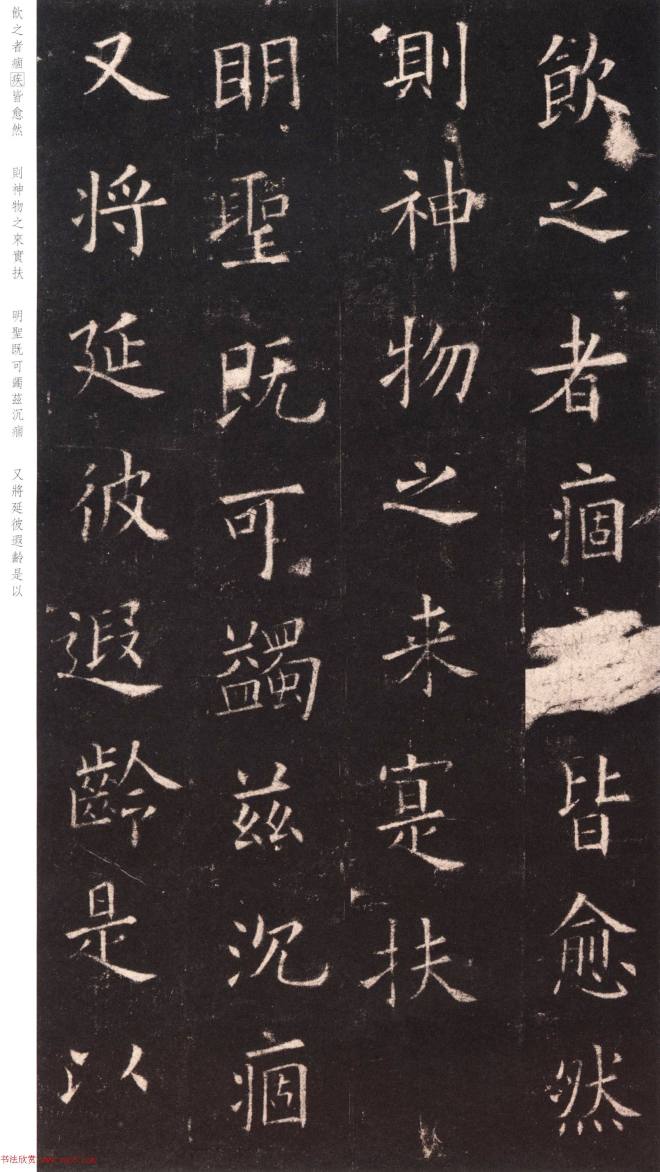 飲之者痼皆愈然
則神物之来寔扶
明聖既可蠲兹沉痼
又将延彼遐齡是以
飲之者痼疾皆愈然 則神物之來實扶 明聖既可蠲茲沉痼 又將延彼遐齡是以
书法欣赏